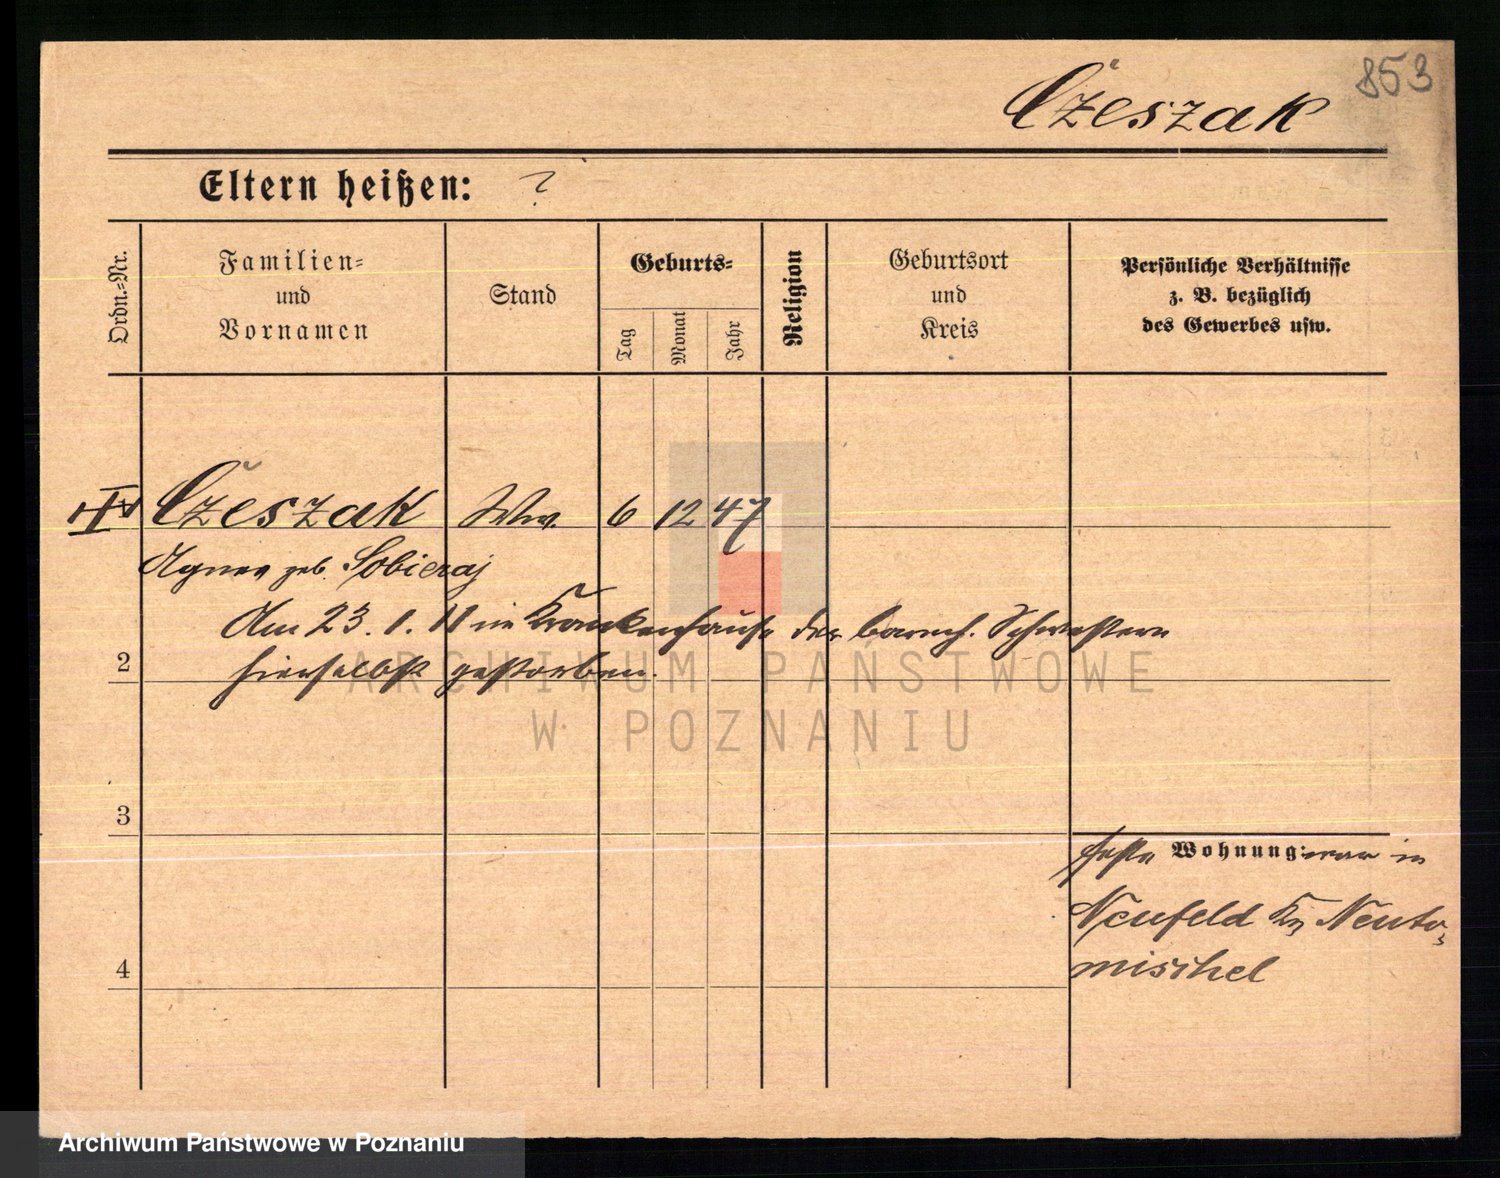 853
Czeszak
Eltern heißen: ?
Ordn.-Nr.
Familien-
und
Vornamen
Stand
Geburts-
Tag
Monat
Jahr
Religion
Geburtsort
und
Kreis
Persönliche Verhältnisse
z. B. bezüglich
des Gewerbes usw.
Czeszak Ww. 6 12 47
Agnes geb. Sobieraj
Am 23. 1. 11 im Krankenhause der barmh. Schwestern
2 hierselbst gestorben.
ARCHIWUM PAŃSTWOWE
W POZNANIU
3
feste Wohnung: war in
Neufeld Kr Neuto-
4 mischel
Archiwum Państwowe w Poznaniu